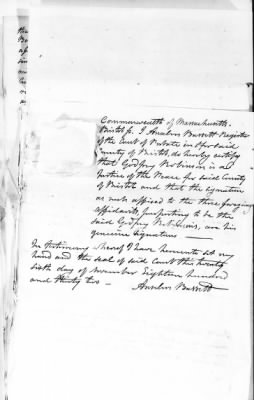 Commonwealth of Massachusetts.
Bristol ss. I Anselm Bassett Register
of the Court of Probate in & for said
County of Bristol, do hereby certify
that Godfrey Robinson is a
Justice of the Peace for said County
of Bristol and that the signature
as such affixed to the three foregoing
affidavits, purporting to be the
said Godfrey Robinson's, are his
genuine signatures
In testimony whereof I have hereunto set my
hand and the seal of said Court this twenty
sixth day of November Eighteen hundred
and thirty two —
Anselm Bassett